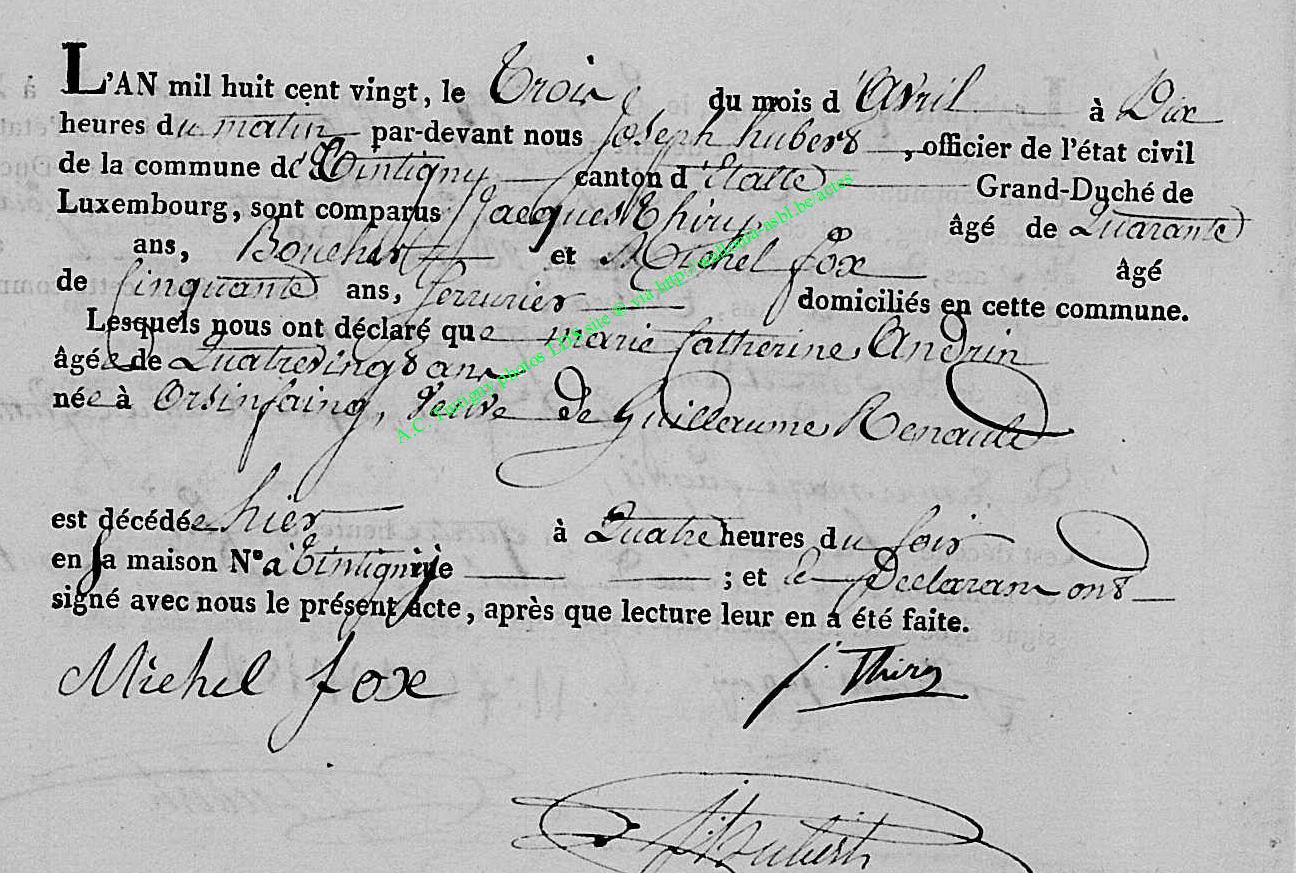 L'AN mil huit cent vingt, le Trois du mois d'Avril à Dix
heures du matin par-devant nous Joseph hubert, officier de l'état civil
de la commune de Tintigny canton d'Etalle Grand-Duché de
Luxembourg, sont comparus Jacques Thiry âgé de Quarante
ans, Boucher et Michel fox âgé
de Cinquante ans, Serrurier domiciliés en cette commune.
Lesquels nous ont déclaré que marie Catherine Andrin
âgée de Quatrevingt ans
née à Orsinfaing, Veuve de Guillaume Renauld
est décédée hier à Quatre heures du soir
en sa maison N° à Tintigny rue ; et le Declarans ont
signé avec nous le présent acte, après que lecture leur en a été faite.
Michel fox J. Thiry
J. Hubert
A.C. Tintigny photos LDS site @ via http://wallonia-asbl.be/actes